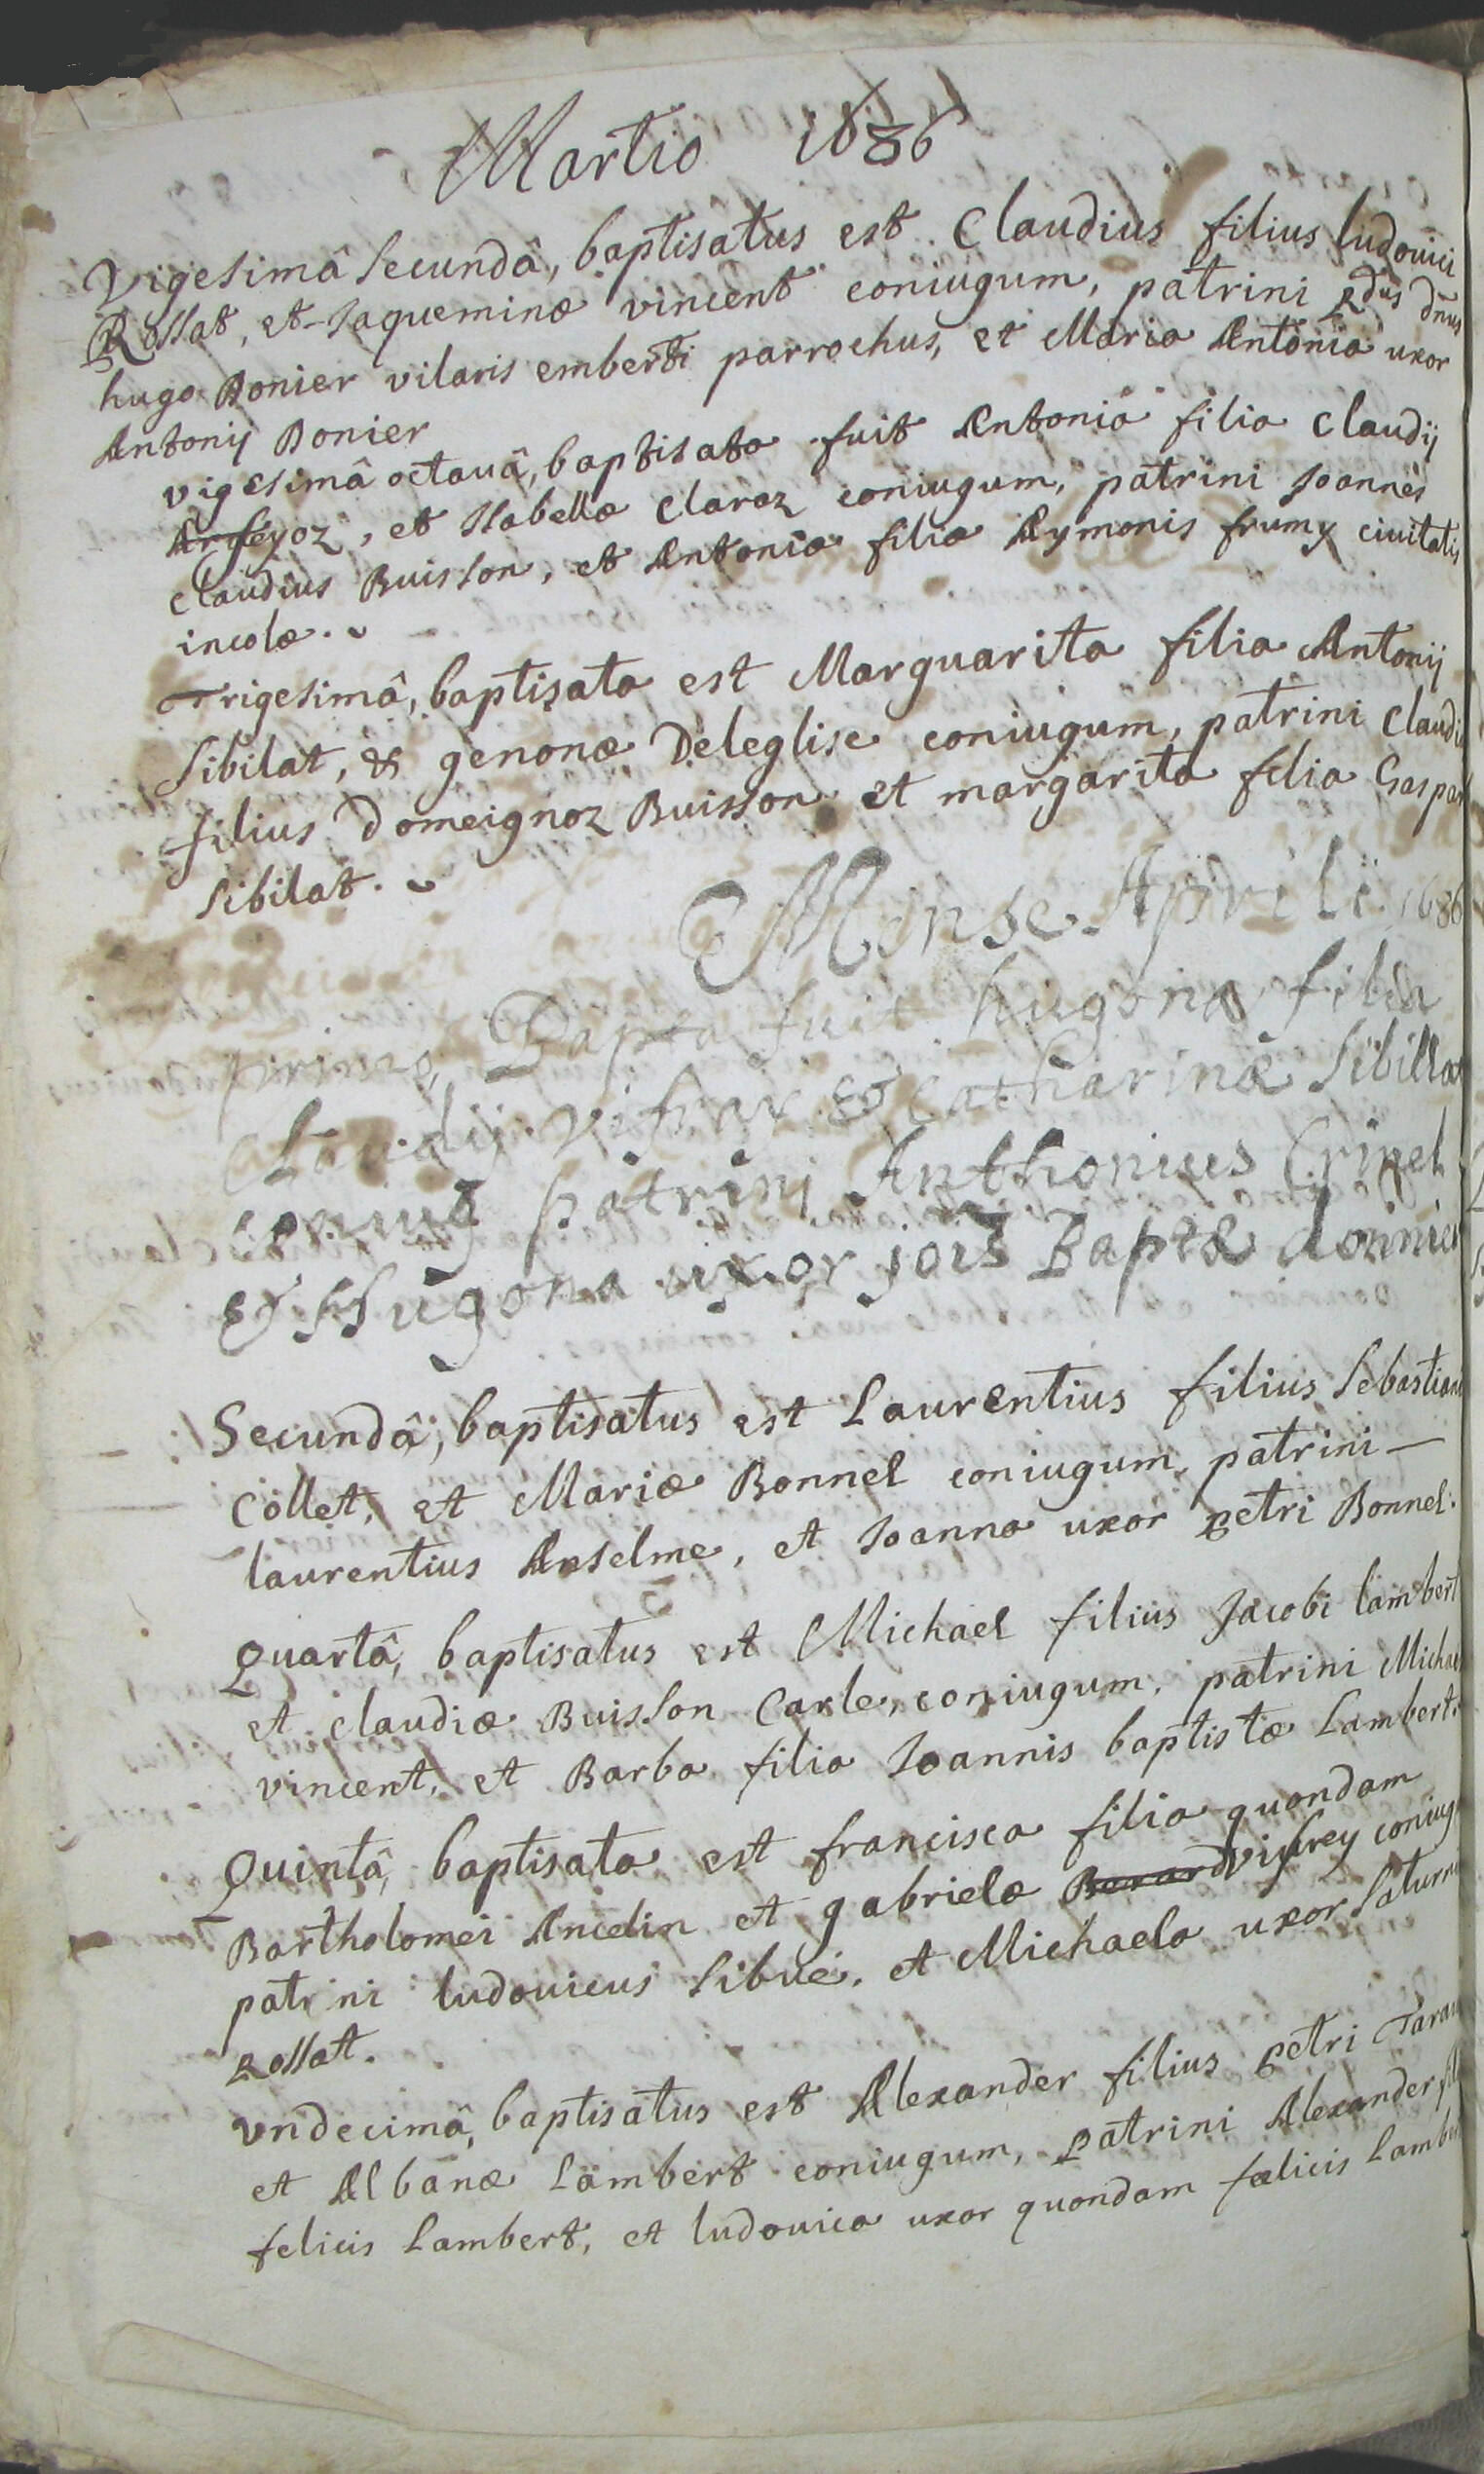 Martio 1686
Vigesimâ secundâ, baptisatus est Claudius filius ludouici
Rossat, et Jaqueminæ vincent coniugum, patrini Rdus dnus
hugo Bonier vilaris emberti parrochus, et Maria Antonia uxor
Antonij Bonier
vigesimâ octauâ, baptisata fuit Antonia filia Claudij
Arfeyoz, et Isabellæ Claraz coniugum, patrini Joannes
Claudius Buisson, et Antonia filia Aymonis frumy ciuitatis
incolæ.
Trigesimâ, baptisata est Marguarita filia Antonij
Sibilat, & genonæ Deleglise coniugum, patrini Claudi
filius Domeignoz Buisson et margarita filia Gaspar
Sibilat.
Mense Aprili 1686
prima Bapta fuit hugona filia
Claudij vifray & Catharinæ Sibilla
coniug patrini Anthonius Crinel
& Hugona uxor jois Baptæ donnie
Secundâ, baptisatus est Laurentius filius Sebastiani
Collet, et Mariæ Bonnel coniugum, patrini
laurentius Anselme, et Joanna uxor petri Bonnel.
Quartâ, baptisatus est Michael filius Jacobi lambert
et claudiæ Buisson Carle, coniugum, patrini Michae
vincent, et Barba filia Joannis baptistæ Lambert.
Quintâ, baptisata est francisca filia quondam
Bartholomei Ancelin et gabrielæ vifrey coniug
patrini ludouicus Sibué, et Michaela uxor Saturni
Rossat.
vndecimâ, baptisatus est Alexander filius petri Tarau
et Albanæ Lambert coniugum, patrini Alexander fil
felicis Lambert, et ludouica uxor quondam fœlicis Lamb